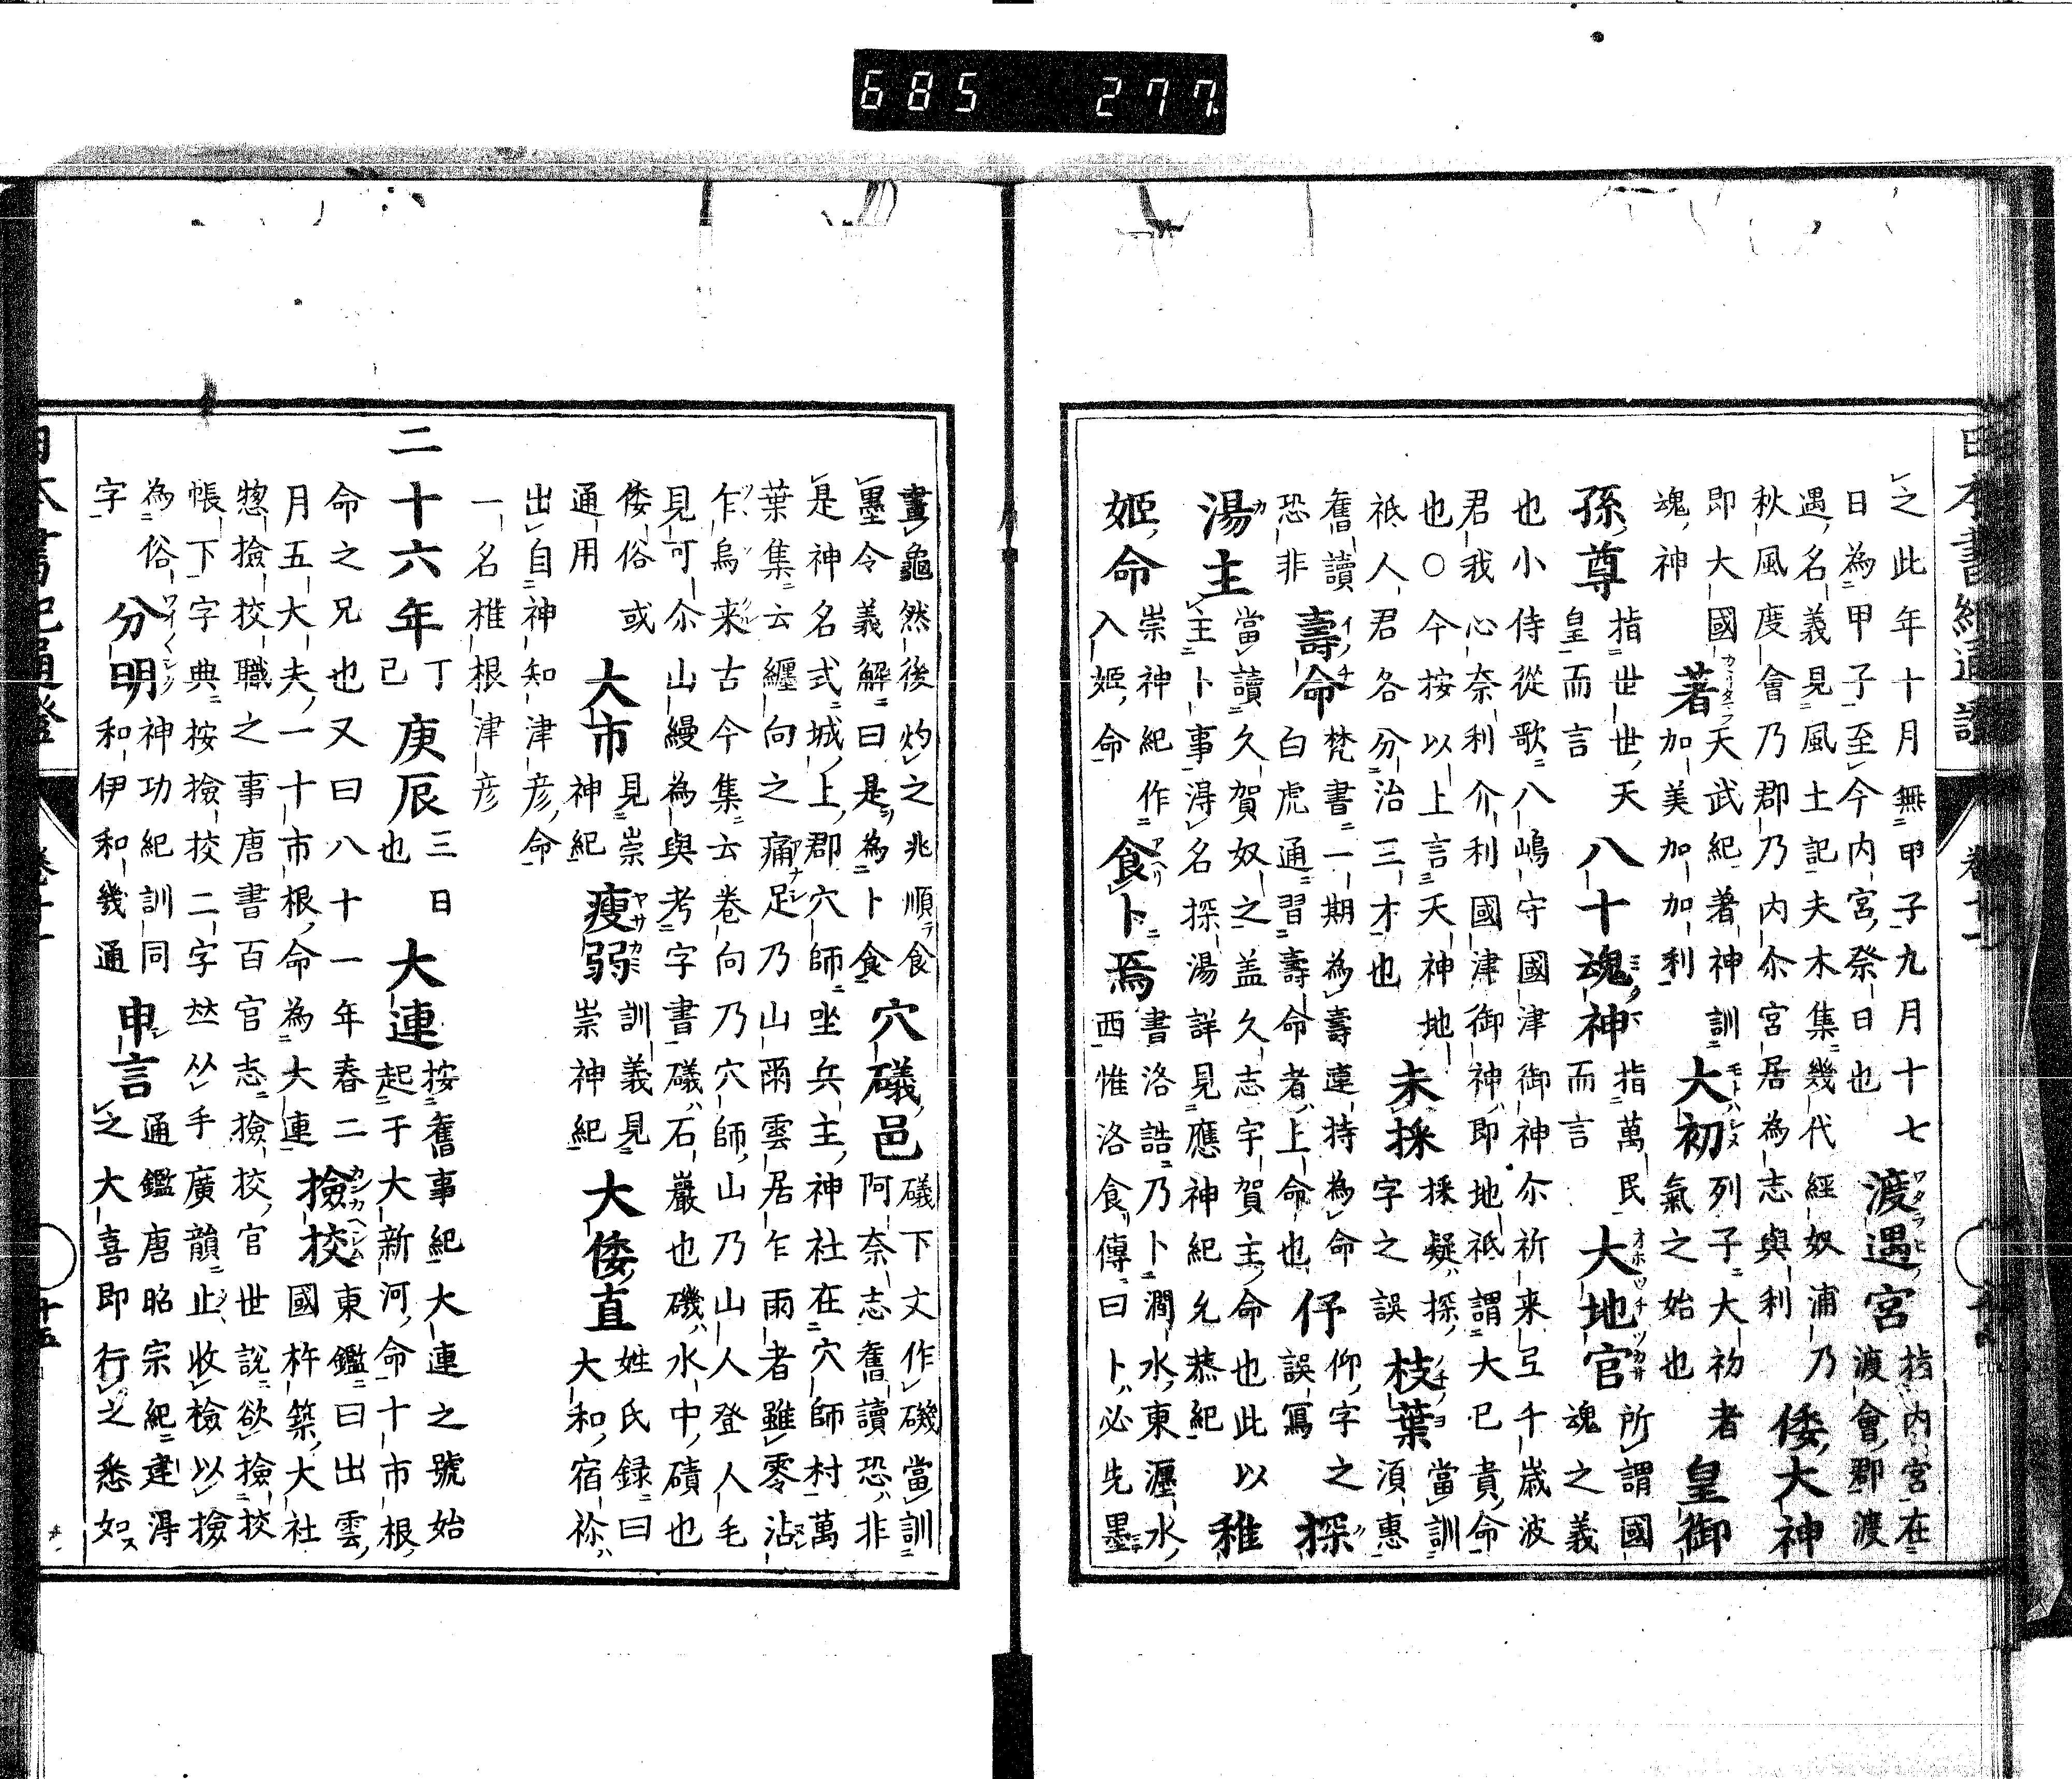 685 277
之此年十月無甲子九月十七
日為甲子至今内宮祭日也
渡遇宮
指内宮在
渡會郡渡
遇名義見風土記夫木集幾代經奴浦乃
秋風度會乃郡乃内尒宮居為志與利
倭大神
即大國
魂神
著
天武紀著神訓
加美加加加利
大初
列子大初者
氣之始也
皇御
孫尊
指世世天
皇而言
八十魂神
指萬民
而言
大地官
所謂國
魂之義
也小侍從歌八嶋守國津御神尒祈来弖千歳波
君我心奈利介利國津御神即地祇謂大己貴命
也〇今按以上言天神地
祇人君各分治三才也
未採
採疑探
字之誤
枝葉
當訓
湏惠
舊讀
恐非
壽命
梵書一期為壽連持為命
白虎通習壽命者上命也
伃
仰字之
誤寫
探
湯主
當讀久賀奴之盖久志宇賀主命也此以
主卜事淂名探湯詳見應神紀允恭紀
稚
姫命
崇神紀作
入姫命
食卜焉
書洛誥乃卜澗水東瀍水
西惟洛食傳曰卜必先墨
畫龜然後灼之兆順食
墨令義解曰是為卜食
穴礒邑
礒下文作磯當訓
阿奈志舊讀恐非
是神名式城上郡穴師坐兵主神社在穴師村萬
葉集云纏向之痛足乃山爾雲居乍雨者雖零沾
乍烏来古今集云卷向乃穴師山乃山人登人毛
見可尒山縵為與考字書礒石巖也磯水中磧也
倭俗或
通用
大市
見崇
神紀
瘦弱
訓義見
崇神紀
大倭直
姓氏録曰
大和宿祢
出自神知津彦命
一名椎根津彦
二十六年
丁
己
庚辰
三日
也
大連
按舊事紀大連之號始
起于大新河命十市根
命之兄也又曰八十一年春二
月五大夫一十市根命為大連
撿挍
東鑑曰出雲
國杵築大社
惣撿挍職之事唐書百官志撿挍官世說欲撿挍
帳下字典按撿挍二字𠀋从手廣韻止收檢以撿
為俗
字
分明
神功紀訓同
和伊和幾通
申言
通鑑唐昭宗紀建淂
之大喜即行之悉如
日本書紀通證
卷十一
十五